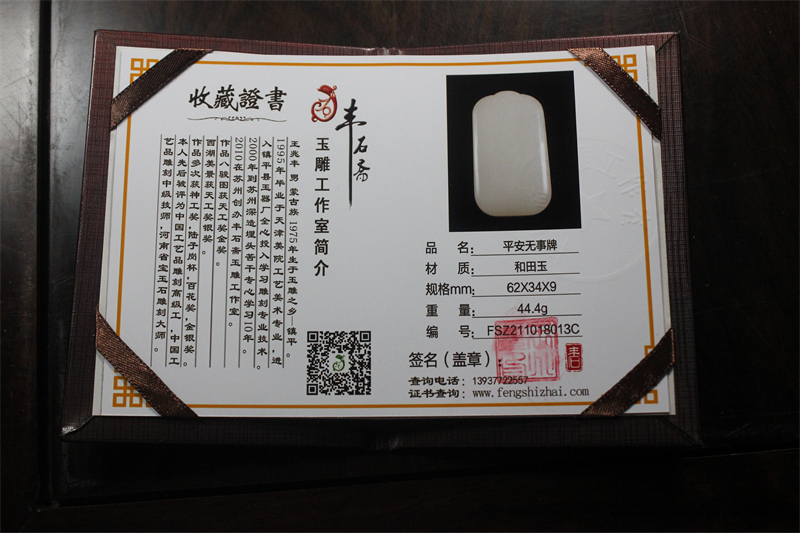 收藏證書
丰石斋
玉雕工作室简介
王兆丰 男 蒙古族 1975年生于玉雕之乡—镇平。
1995年毕业于天津美院工艺美术专业，进
入镇平县玉器厂全心投入学习雕刻专业技术。
2000年到苏州深造埋头苦干专心学习10年。
2010在苏州创办丰石斋玉雕工作室。
作品八骏图获天工奖金奖。
西湖美景获天工奖银奖。
作品多次获神工奖，陆子岗杯，百花奖，金银奖。
本人先后被评为中国工艺品雕刻高级工，中国工
艺品雕刻中级技师，河南省宝玉石雕刻大师。
品 名： 平安无事牌
材 质： 和田玉
规格mm： 62X34X9
重 量： 44.4g
编 号： FSZ211018013C
签名（盖章）：
丰石
查询电话： 13937722557
证书查询： www.fengshizhai.com